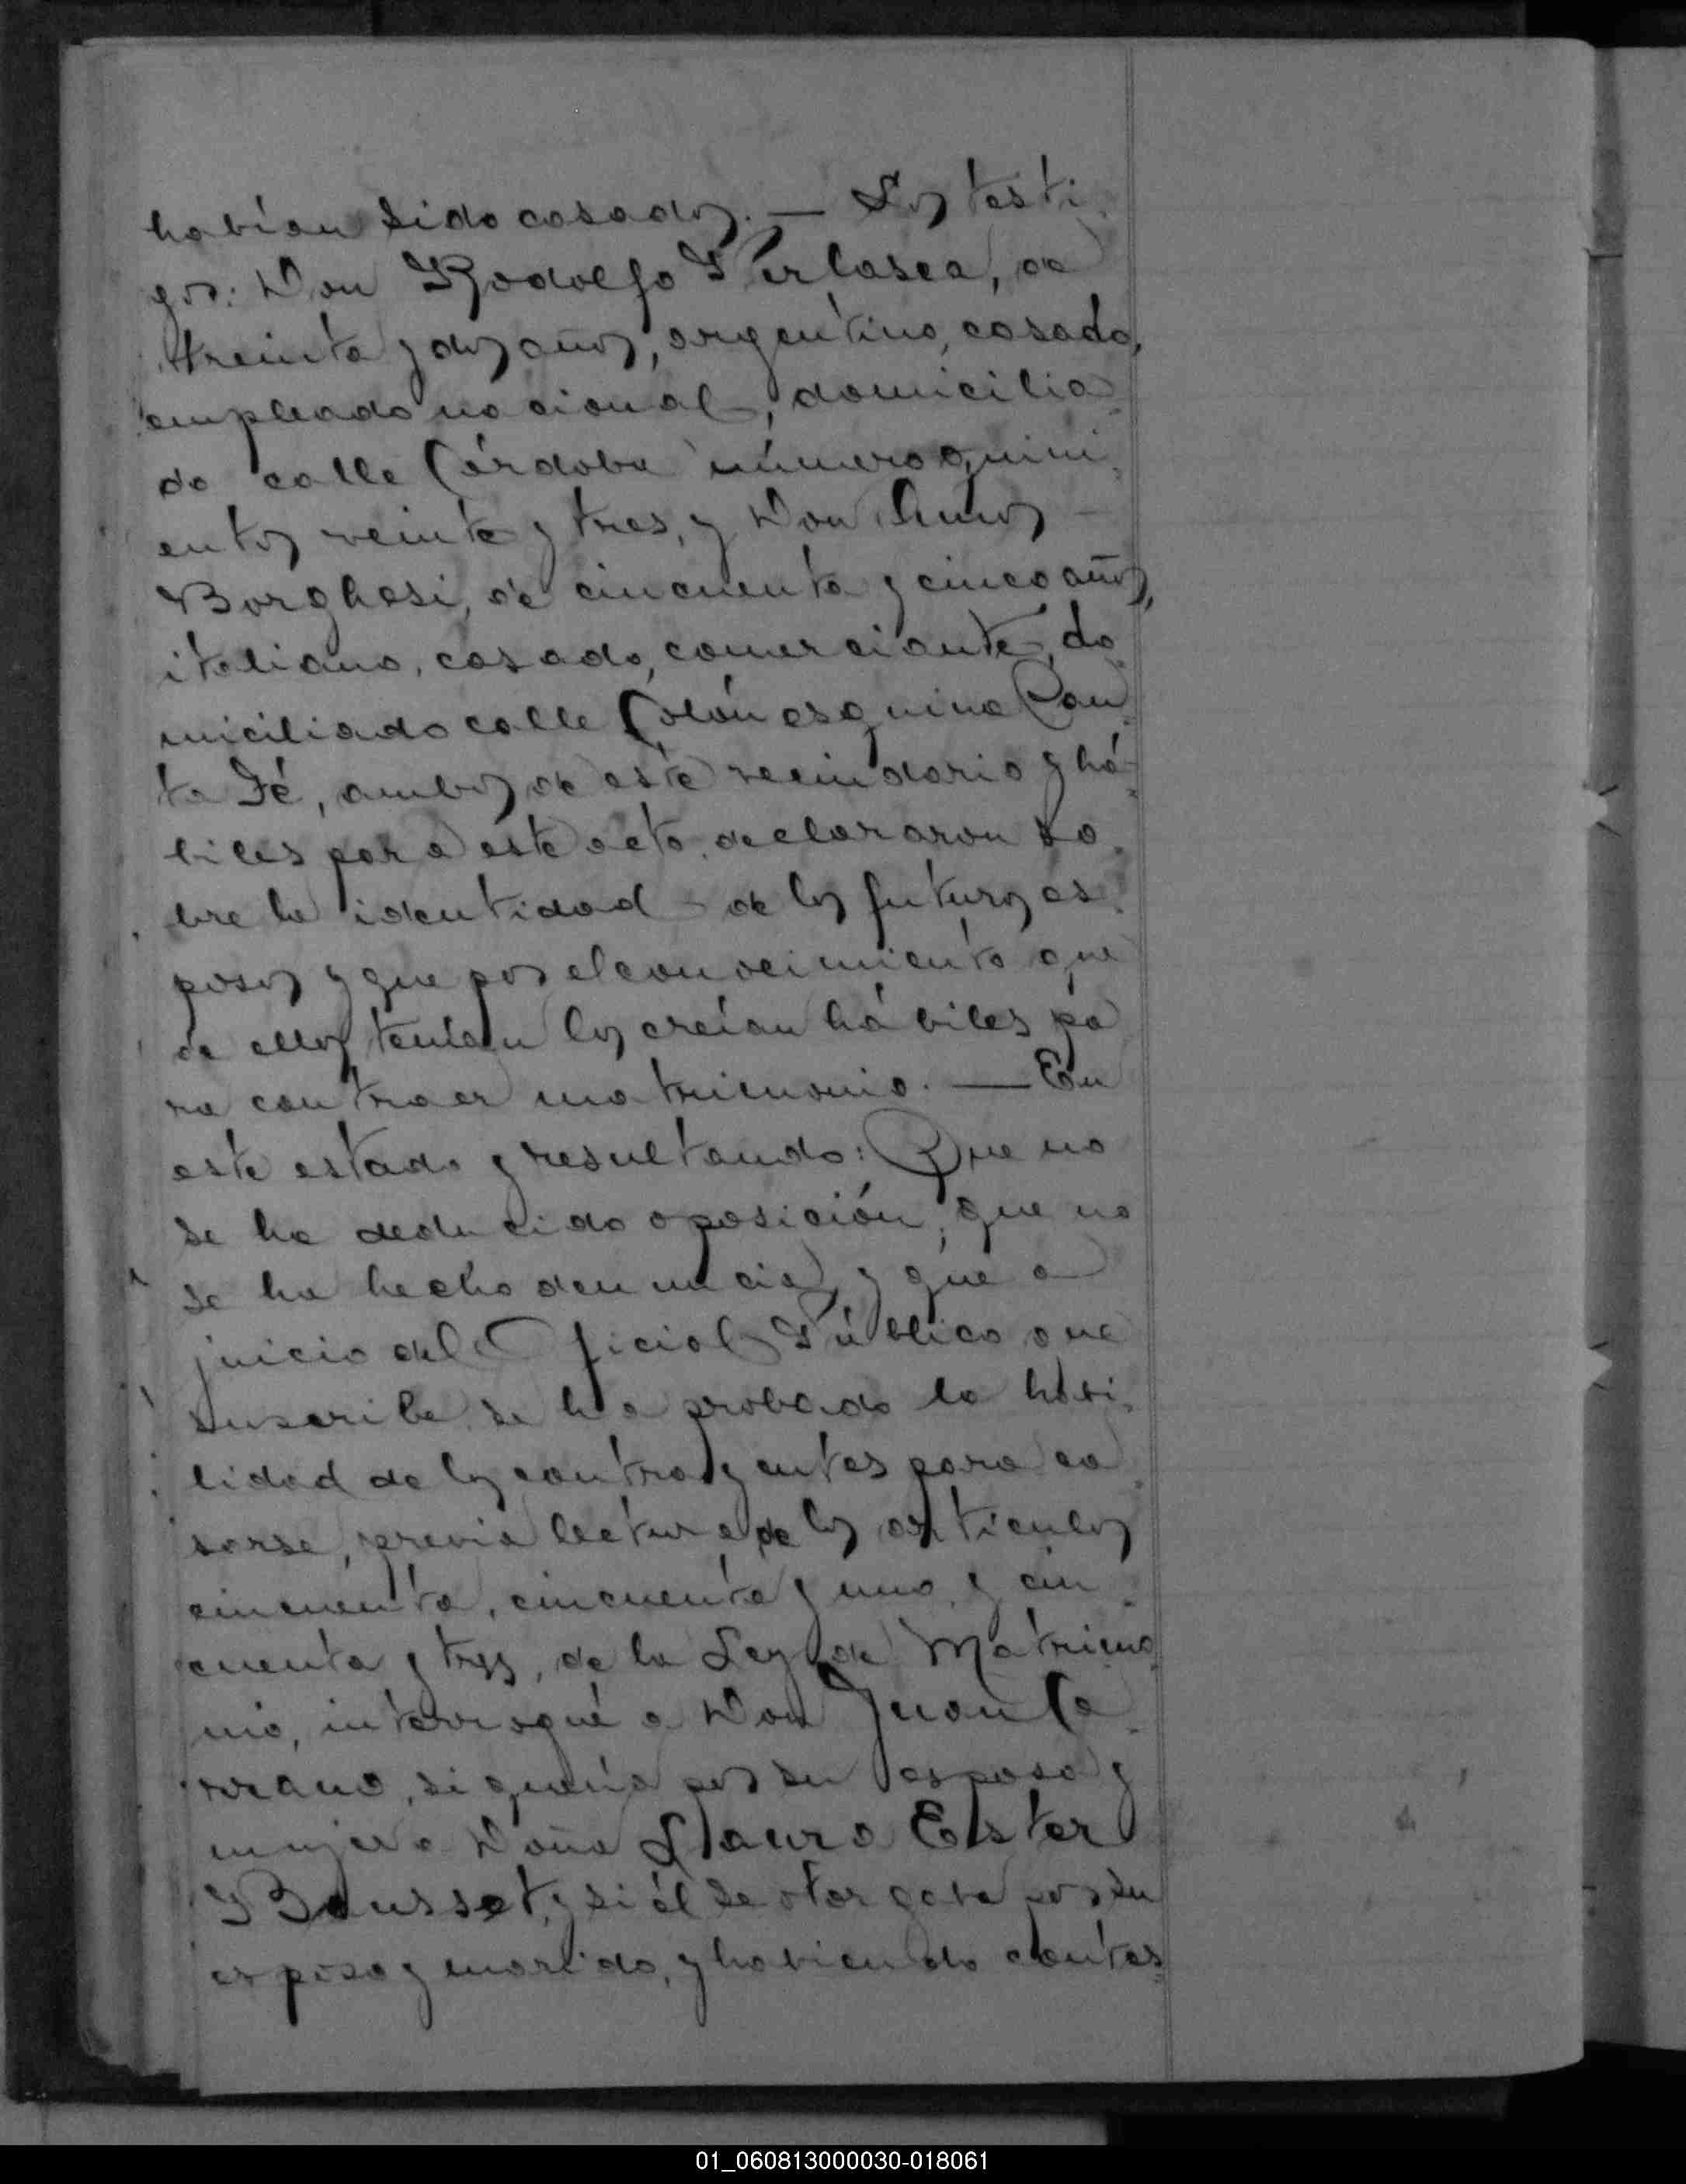 habían sido casados. — Los testi
gos: Don Rodolfo Perlasca, de
treinta y dos años, argentino, casado,
empleado nacional, domicilia
do calle Córdoba número quini
entos veinte y tres, y Don Amos
Borghesi, de cincuenta y cinco años,
italiano, casado, comerciante, do
miciliado calle Colón esquina San
ta Fé, ambos de este vecindario y há
biles para este acto, declararon so
bre la identidad de los futuros es
posos y que por el conocimiento que
de ellos tenían los creían hábiles pa
ra contraer matrimonio. — En
este estado y resultando: Que no
se ha deducido oposición; que no
se ha hecho denuncia, y que a
juicio del Oficial Público que
suscribe se ha probado la habi
lidad de los contrayentes para ca
sarse, previa lectura de los artículos
cincuenta, cincuenta y uno, y cin
cuenta y tres, de la Ley de Matrimo
nio, interrogué a Don Juan Ca
rrano, si quería por su esposa y
mujer a Doña Laura Ester
Bousset, y si él se otorgaba por su
esposo y marido, y habiendo contes
01_060813000030-018061